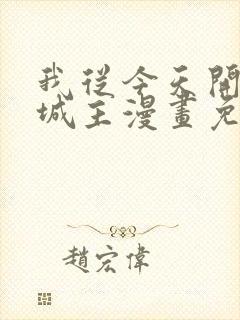 我從今天開
城主漫畫免
趙宏偉